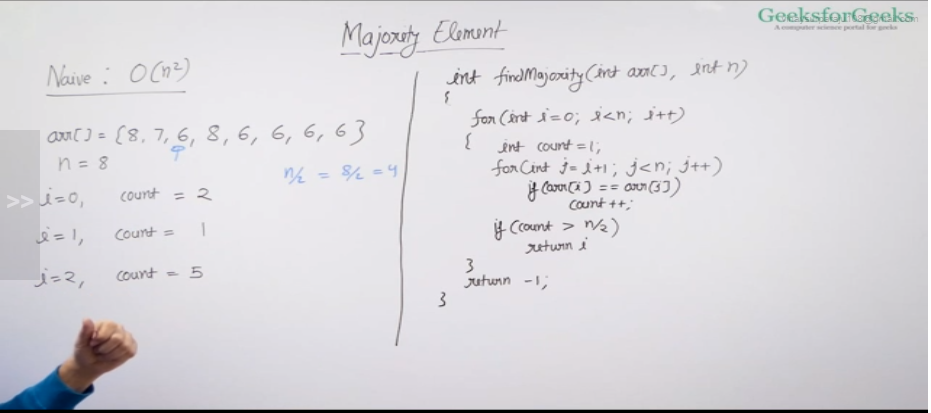 GeeksforGeeks
A computer science portal for geeks
Majority Element
Naive : O(n²)
arr[] = {8, 7, 6, 8, 6, 6, 6, 6}
n = 8
n/2 = 8/2 = 4
i=0, count = 2
i=1, count = 1
i=2, count = 5
int findMajority(int arr[], int n)
{
for(int i=0; i<n; i++)
{ int count=1;
for(int j=i+1; j<n; j++)
if(arr[i] == arr[j])
count++;
if(count > n/2)
return i
}
return -1;
}
>>